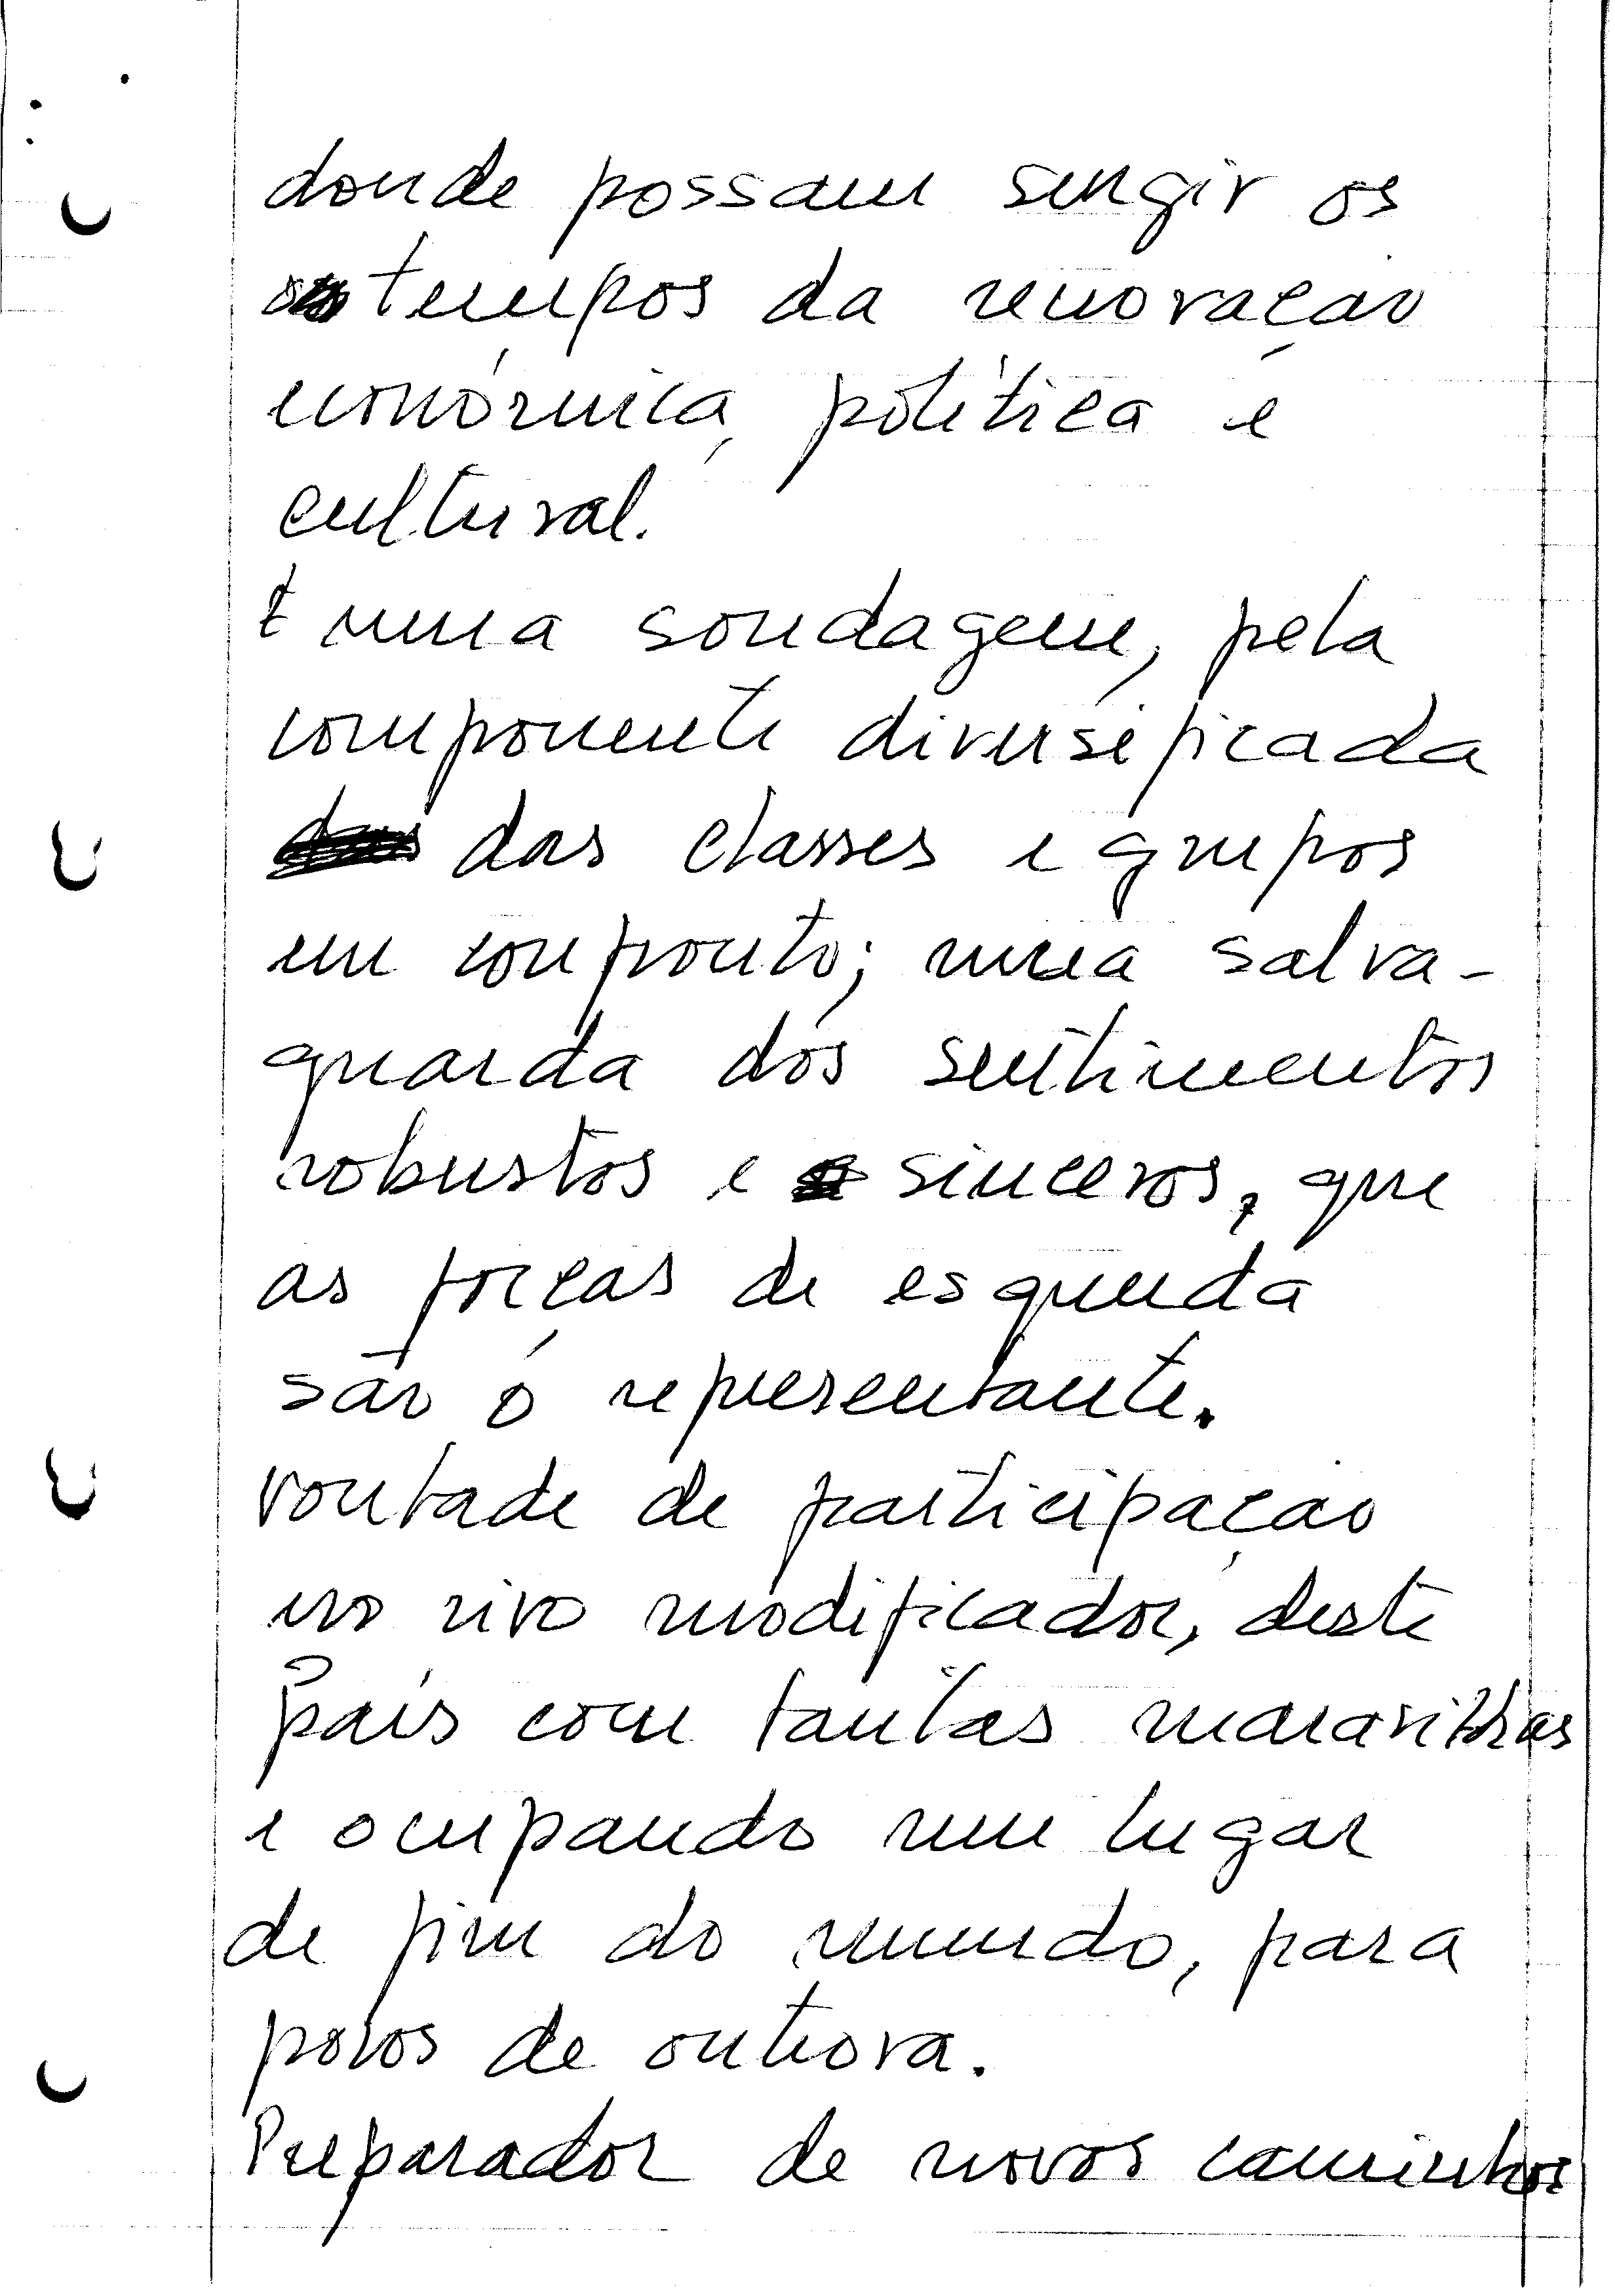 donde possam surgir os
tempos da renovação
económica, política e
cultural.
É uma sondagem, pela
componente diversificada
das classes e grupos
em confronto; uma salva-
guarda dos sentimentos
robustos e sinceros, que
as forças de esquerda
são o representante.
Vontade de participação
no vivo modificador, deste
país com tantas maravilhas
e ocupando um lugar
de fim do mundo, para
povos de outrora.
Preparador de novos caminhos